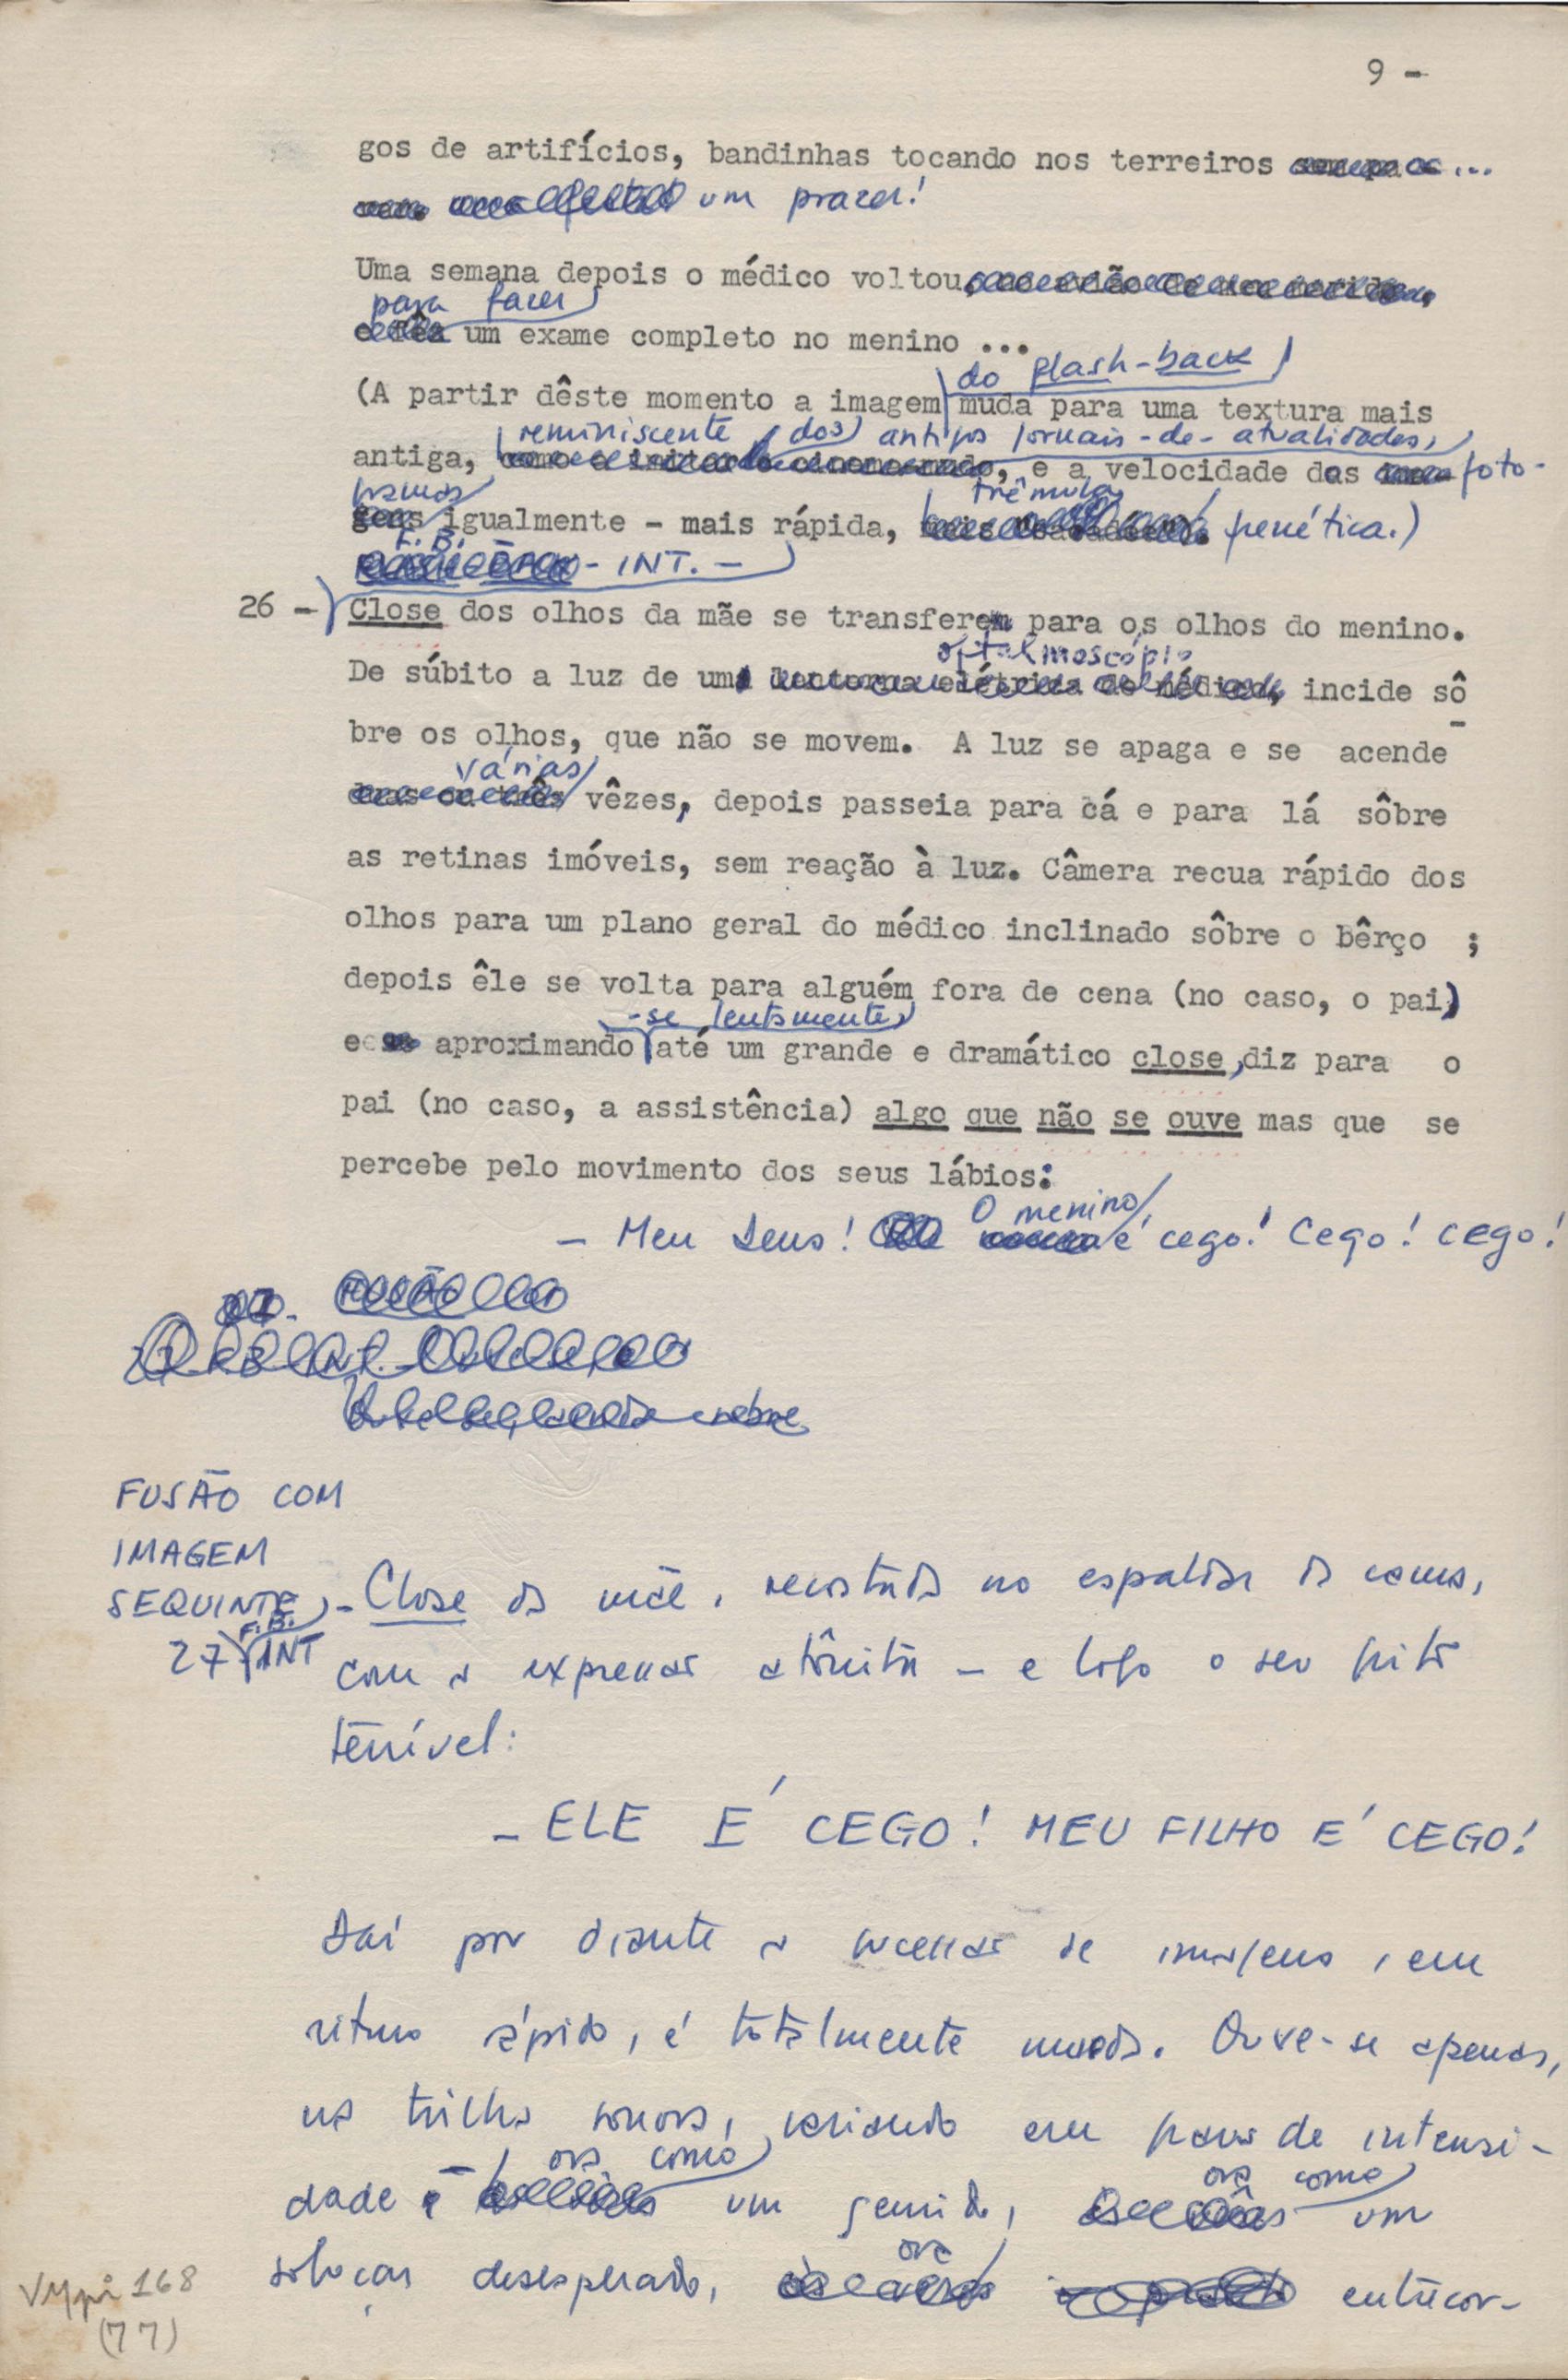 9 -
gos de artifícios, bandinhas tocando nos terreiros ...
um prazer!
Uma semana depois o médico voltou
para fazer
um exame completo no menino ...
do flash-back
(A partir dêste momento a imagem muda para uma textura mais
reminiscente dos antigos jornais-de-atualidades,
antiga, e a velocidade dos foto-
gramas
igualmente - mais rápida, trêmula, frenética.)
F.B.
- INT. -
26 - Close dos olhos da mãe se transferem para os olhos do menino.
oftalmoscópio
De súbito a luz de um incide sô
bre os olhos, que não se movem. A luz se apaga e se acende
várias
vêzes, depois passeia para cá e para lá sôbre
as retinas imóveis, sem reação à luz. Câmera recua rápido dos
olhos para um plano geral do médico inclinado sôbre o bêrço ;
depois êle se volta para alguém fora de cena (no caso, o pai)
-se lentamente
e aproximando até um grande e dramático close, diz para o
pai (no caso, a assistência) algo que não se ouve mas que se
percebe pelo movimento dos seus lábios:
O menino
- Meu Deus! é cego! Cego! Cego!
FUSÃO COM
IMAGEM
SEQUINTE - Close da mãe, recostada no espaldar da cama,
F.B.
27 INT com a expressão atônita - e logo o seu grito
terrível:
- ELE É CEGO! MEU FILHO É CEGO!
Daí por diante a sucessão de imagens, em
ritmo rápido, é totalmente muda. Ouve-se apenas,
na trilha sonora, variando em graus de intensi-
ora como ora como
dade - um gemido, um
ora
soluçar desesperado, entrecor-
168
(77)